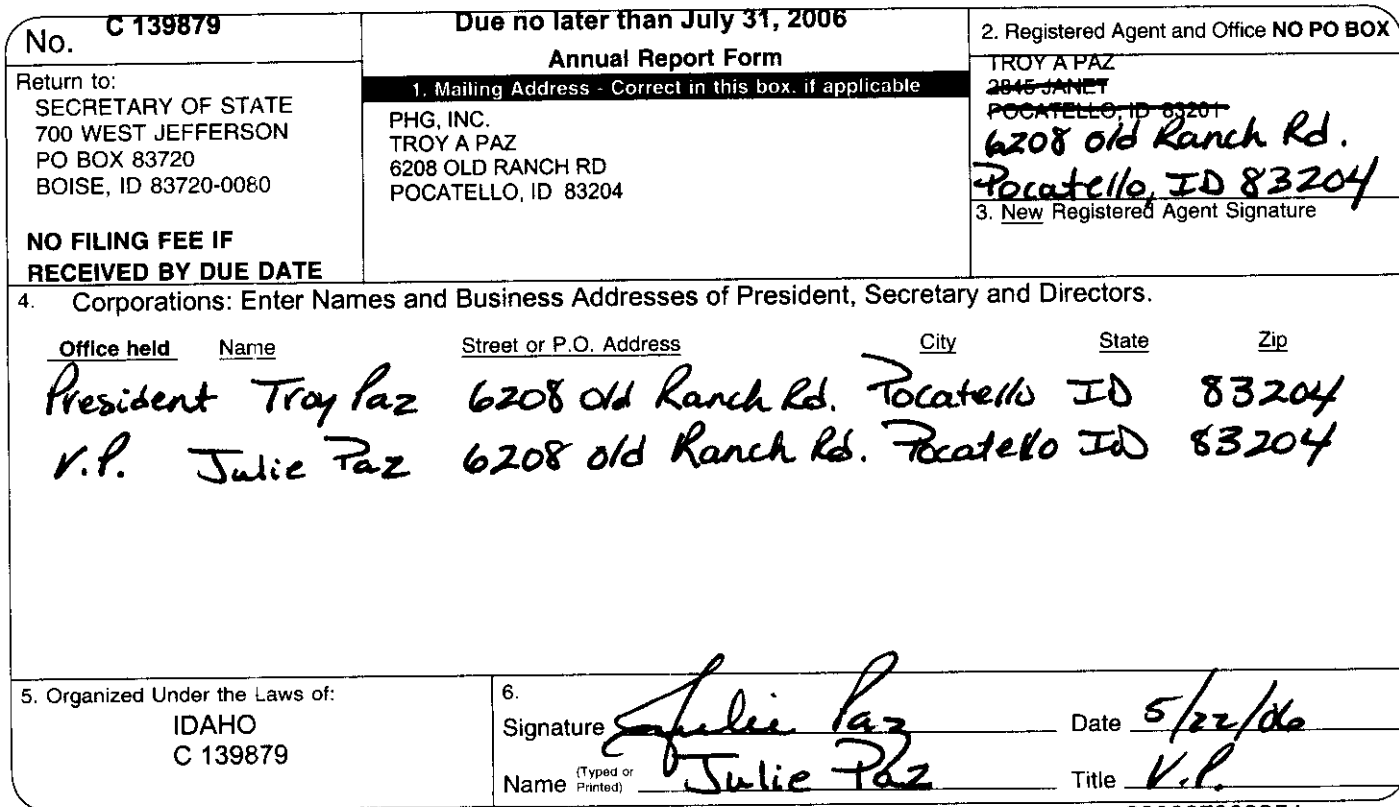 No. C 139879
Return to:
SECRETARY OF STATE
700 WEST JEFFERSON
PO BOX 83720
BOISE, ID 83720-0080
NO FILING FEE IF
RECEIVED BY DUE DATE
Due no later than July 31, 2006
Annual Report Form
1. Mailing Address - Correct in this box. if applicable
PHG, INC.
TROY A PAZ
6208 OLD RANCH RD
POCATELLO, ID 83204
2. Registered Agent and Office NO PO BOX
TROY A PAZ
2845 JANET
POCATELLO, ID 83201
6208 old Ranch Rd.
Pocatello, ID 83204
3. New Registered Agent Signature
4. Corporations: Enter Names and Business Addresses of President, Secretary and Directors.
Office held Name Street or P.O. Address City State Zip
President Troy Paz 6208 old Ranch Rd. Pocatello ID 83204
V.P. Julie Paz 6208 old Ranch Rd. Pocatello ID 83204
5. Organized Under the Laws of:
IDAHO
C 139879
6.
Signature Julie Paz Date 5/22/06
Name (Typed or Printed) Julie Paz Title V.P.